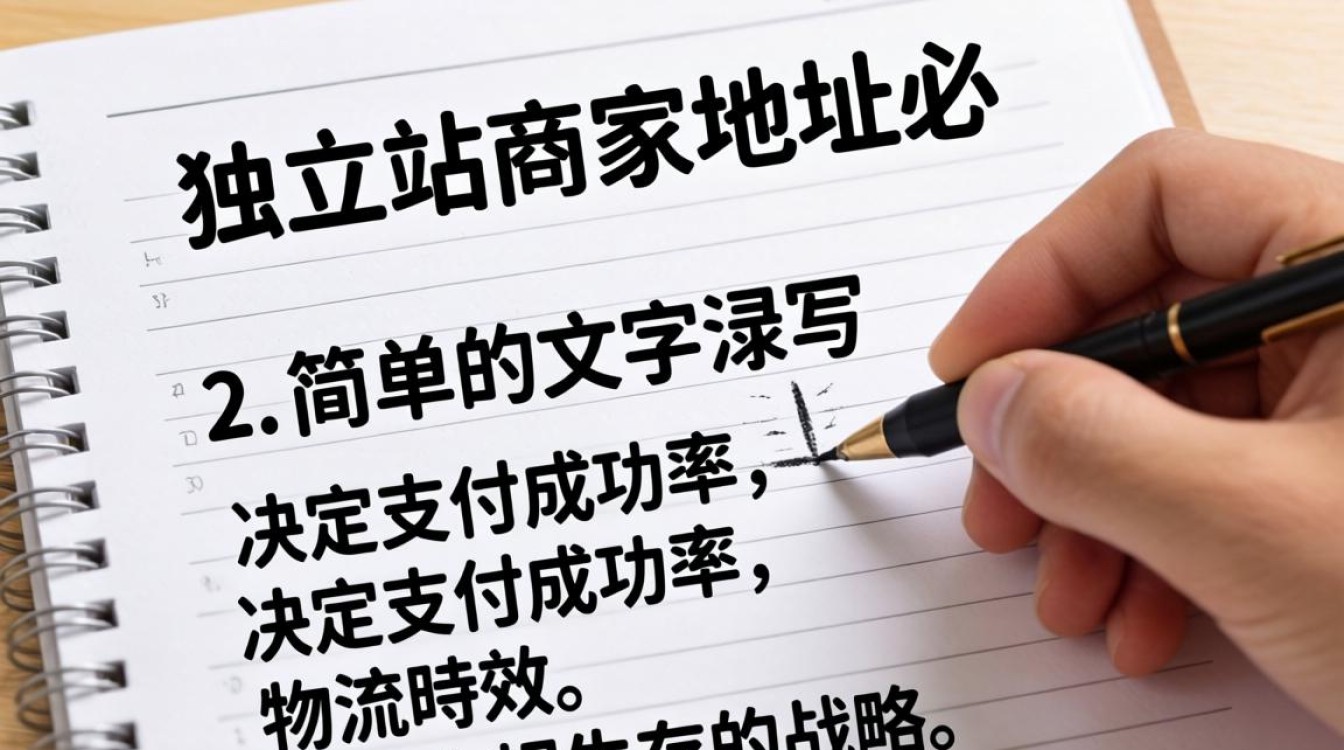 独立站商家地址必
2.简单的文字渌写
决定支付成功率，
决定支付成功率，
物流時效。
生存的战略。